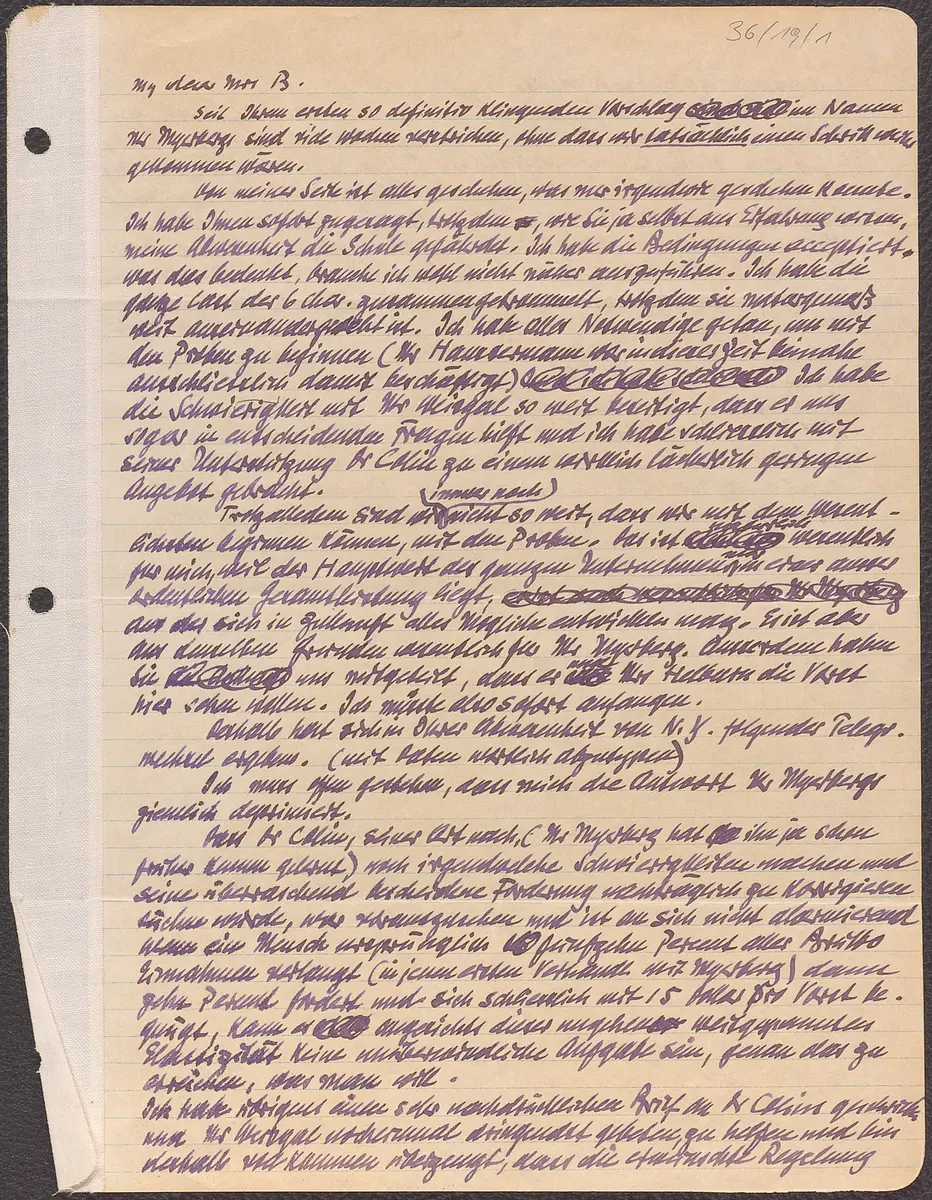 36/19/1
My dear Mrs B.
Seit Ihrem ersten so definitiv klingenden Vorschlag im Namen
Mr Myerbergs sind viele Wochen verstrichen, ohne dass wir tatsächlich einen Schritt weiter
gekommen wären.
Von meiner Seite ist alles geschehen, was nur irgendwie geschehen konnte.
Ich habe Ihnen sofort zugesagt, trotzdem, wie Sie ja selbst aus Erfahrung wissen,
meine Abwesenheit die Schule gefährdet. Ich habe die Bedingungen acceptiert.
was das bedeutet, brauche ich wohl nicht näher auszuführen. Ich habe die
ganze Cast der 6 Char. zusammengetrommelt, trotzdem sie naturgemäß
weit auseinandergeweht ist. Ich habe alles Notwendige getan, um mit
den Proben zu beginnen (Mr Haeusermann war in dieser Zeit beinahe
ausschliesslich damit beschäftigt) Ich habe
die Schwierigkeit mit Mr Weisgal so weit beseitigt, dass er uns
sogar in entscheidenden Fragen hilft und ich habe schliesslich mit
seiner Unterstützung Dr Colin zu einem wirklich lächerlich geringen
Angebot gebracht.
Trotzalledem sind wir (immer noch) nicht so weit, dass wir mit dem Wesent-
lichsten beginnen können, mit den Proben. Das ist wesentlich
für mich, weil der Hauptwert des ganzen Unternehmens in einer ausser
ordentlichen Gesamtleistung liegt,
aus der sich in Zukunft alles Mögliche entwickeln mag. Es ist aber
aus denselben Gründen wesentlich für Mr Myerberg. Ausserdem haben
Sie uns mitgeteilt, dass er mit Mrs die Vorst
hier sehen wollen. Ich müsste also sofort anfangen.
Deshalb hat sich in Ihrer Abwesenheit von N.Y. folgender Telegr.
wechsel ergeben. (mit Daten wörtlich abzutippen)
Ich muss offen gestehen, dass mich die Antwort Mr Myerbergs
ziemlich deprimiert.
Dass Dr Colin, seiner Art nach, (Mr Myerberg hat ihn ja schon
früher kennen gelernt) noch irgendwelche Schwierigkeiten machen und
seine überraschend bescheidene Forderung nachträglich zu korrigieren
suchen würde, war vorauszusehen und ist an sich nicht alarmierend
Wenn ein Mensch ursprünglich fünfzehn Percent aller Brutto
Einnahmen verlangt (in jenen ersten Verhandl. mit Myerberg) dann
zehn Percent fordert und sich schliesslich mit 15 Dollar pro Vorst be-
gnügt, kann es angesichts dieser ungeheuer weitgespannten
Elastizität keine unüberwindliche Aufgabe sein, genau das zu
erreichen, was man will.
Ich habe übrigens einen sehr nachdrücklichen Brief an Dr Colin geschrieben
und Mr Weisgal nocheinmal dringendst gebeten, zu helfen und bin
deshalb vollkommen überzeugt, dass die erwünschte Regelung